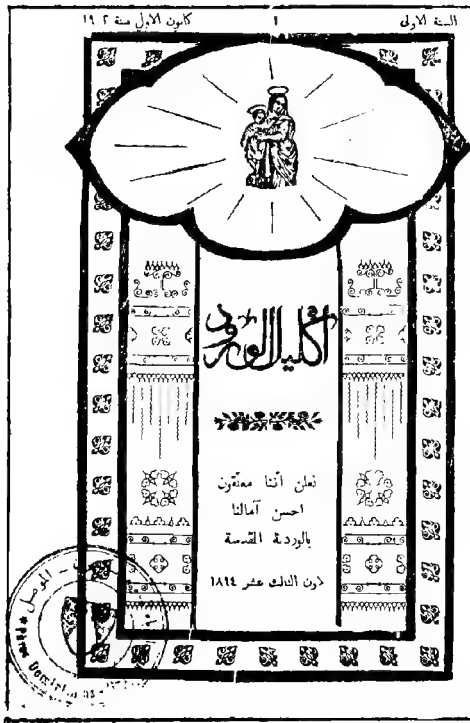 السنة الاولى ١ كانون الاول سنة ١٩٠٢
اكليل الورود
نعلن اننا معلقون
احسن آمالنا
بالوردية المقدسة
لاون الثالث عشر ١٨٩٤
الموصل